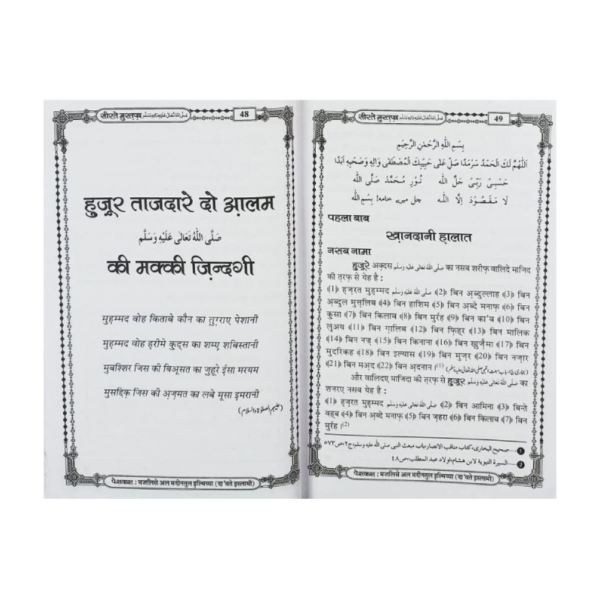 सीरते मुस्तफ़ा صَلَّى اللّٰهُ تَعَالٰى عَلَيْهِ وَسَلَّم 48
हुज़ूर ताजदारे दो आ़लम
صَلَّى اللّٰهُ تَعَالٰى عَلَيْهِ وَسَلَّم
की मक्की ज़िन्दगी
मुह़म्मद वोह किताबे कौन का तुग़राए पेशानी
मुह़म्मद वोह ह़रीमे क़ुद्स का शम्ए़ शबिस्तानी
मुबश्शिर जिस की बिअ़्सत का ज़ुहूरे ई़सा मरयम
मुसद्दिक़ जिस की अ़ज़मत का लबे मूसा इमरानी
पेशकश : मजलिसे अल मदीनतुल इल्मिय्या (दा'वते इस्लामी)
सीरते मुस्तफ़ा صَلَّى اللّٰهُ تَعَالٰى عَلَيْهِ وَسَلَّم 49
بِسْمِ اللّٰهِ الرَّحْمٰنِ الرَّحِيْمِ
اَللّٰهُمَّ لَكَ الْحَمْدُ سَرْمَدًا صَلِّ عَلٰى حَبِيْبِكَ الْمُصْطَفٰى وَاٰلِهٖ وَصَحْبِهٖ اَبَدًا
حَسْبِىْ رَبِّىْ جَلَّ اللّٰه نُوْرِ مُحَمَّدْ صَلَّى اللّٰه
لَا مَقْصُوْدَ اِلَّا اللّٰه
पहला बाब
ख़ानदानी ह़ालात
नसब नामा
हुज़ूरे अक़्दस صلى الله تعالى عليه وسلم का नसब शरीफ़ वालिदे माजिद
की त़रफ़ से येह है :
﴾1﴿ ह़ज़रत मुह़म्मद صلى الله تعالى عليه وسلم ﴾2﴿ बिन अ़ब्दुल्लाह ﴾3﴿ बिन
अ़ब्दुल मुत़्त़लिब ﴾4﴿ बिन हाशिम ﴾5﴿ बिन अ़ब्दे मनाफ़ ﴾6﴿ बिन
क़ुसा ﴾7﴿ बिन किलाब ﴾8﴿ बिन मुर्रह ﴾9﴿ बिन का'ब ﴾10﴿ बिन
लुअय ﴾11﴿ बिन ग़ालिब ﴾12﴿ बिन फ़िह्र ﴾13﴿ बिन मालिक
﴾14﴿ बिन नज़्र ﴾15﴿ बिन किनाना ﴾16﴿ बिन ख़ुज़ैमा ﴾17﴿ बिन
मुदरिकह ﴾18﴿ बिन इल्यास ﴾19﴿ बिन मुज़र ﴾20﴿ बिन नज़ार
﴾21﴿ बिन मअ़द ﴾22﴿ बिन अ़दनान (1)
और वालिदए माजिदा की त़रफ़ से हुज़ूर صلى الله تعالى عليه وسلم का
शजरए नसब येह है :
﴾1﴿ ह़ज़रत मुह़म्मद صلى الله تعالى عليه وسلم ﴾2﴿ बिन आमिना ﴾3﴿ बिन्ते
वहब ﴾4﴿ बिन अ़ब्दे मनाफ़ ﴾5﴿ बिन ज़हरा ﴾6﴿ बिन किलाब ﴾7﴿ बिन
मुर्रह (2)
1 صحيح البخارى، كتاب مناقب الانصار، باب مبعث النبى صلى الله عليه وسلم، ج٢، ص٥٧٣
2 السيرة النبوية لابن هشام، اولاد عبد المطلب، ص٤٨
पेशकश : मजलिसे अल मदीनतुल इल्मिय्या (दा'वते इस्लामी)